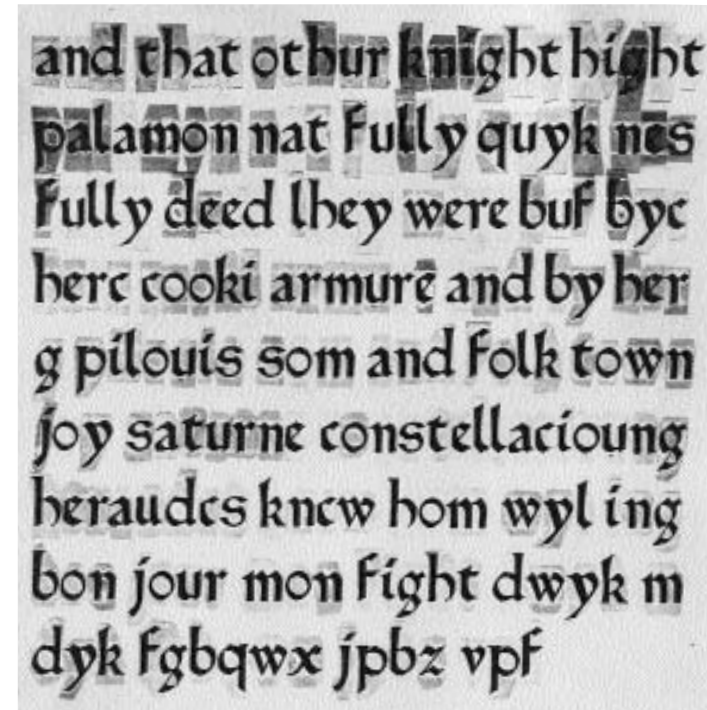 and that othur knight hight
palamon nat fully quyk nes
fully deed lhey were buf byc
herc cooki armure and by her
g pilouis som and folk town
joy saturne constellacioung
heraudcs kncw hom wyl ing
bon jour mon fight dwyk m
dyk fgbqwx jpbz vpf